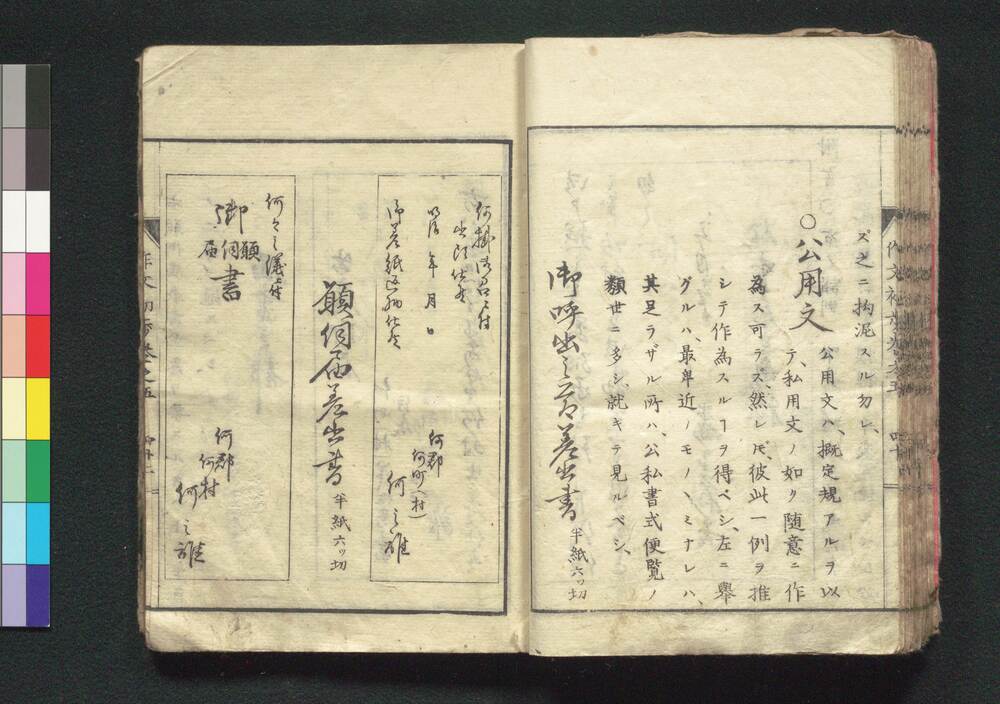 ズ之ニ拘泥スル勿レ、
○公用文 公用文ハ、概定規アルヲ以
テ、私用文ノ如ク随意ニ作
為ス可ラズ、然レ𪜈、彼此一例ヲ推
シテ作為スルヿヲ得ベシ、左ニ舉
グルハ、最卑近ノモノヽミナレハ、
其足ラザル所ハ、公私書式便覧ノ
類世ニ多シ、就キテ見ルベシ、
御呼出之節差出書 半紙六ッ切
何掛御召ニ付
出頭仕候
明治 年 月 日
御差紙返納仕候
何郡
何町(村)
何之誰
願伺届差出書 半紙六ッ切
何々之儀ニ付
御 願伺届 書
何郡
何村
何之誰